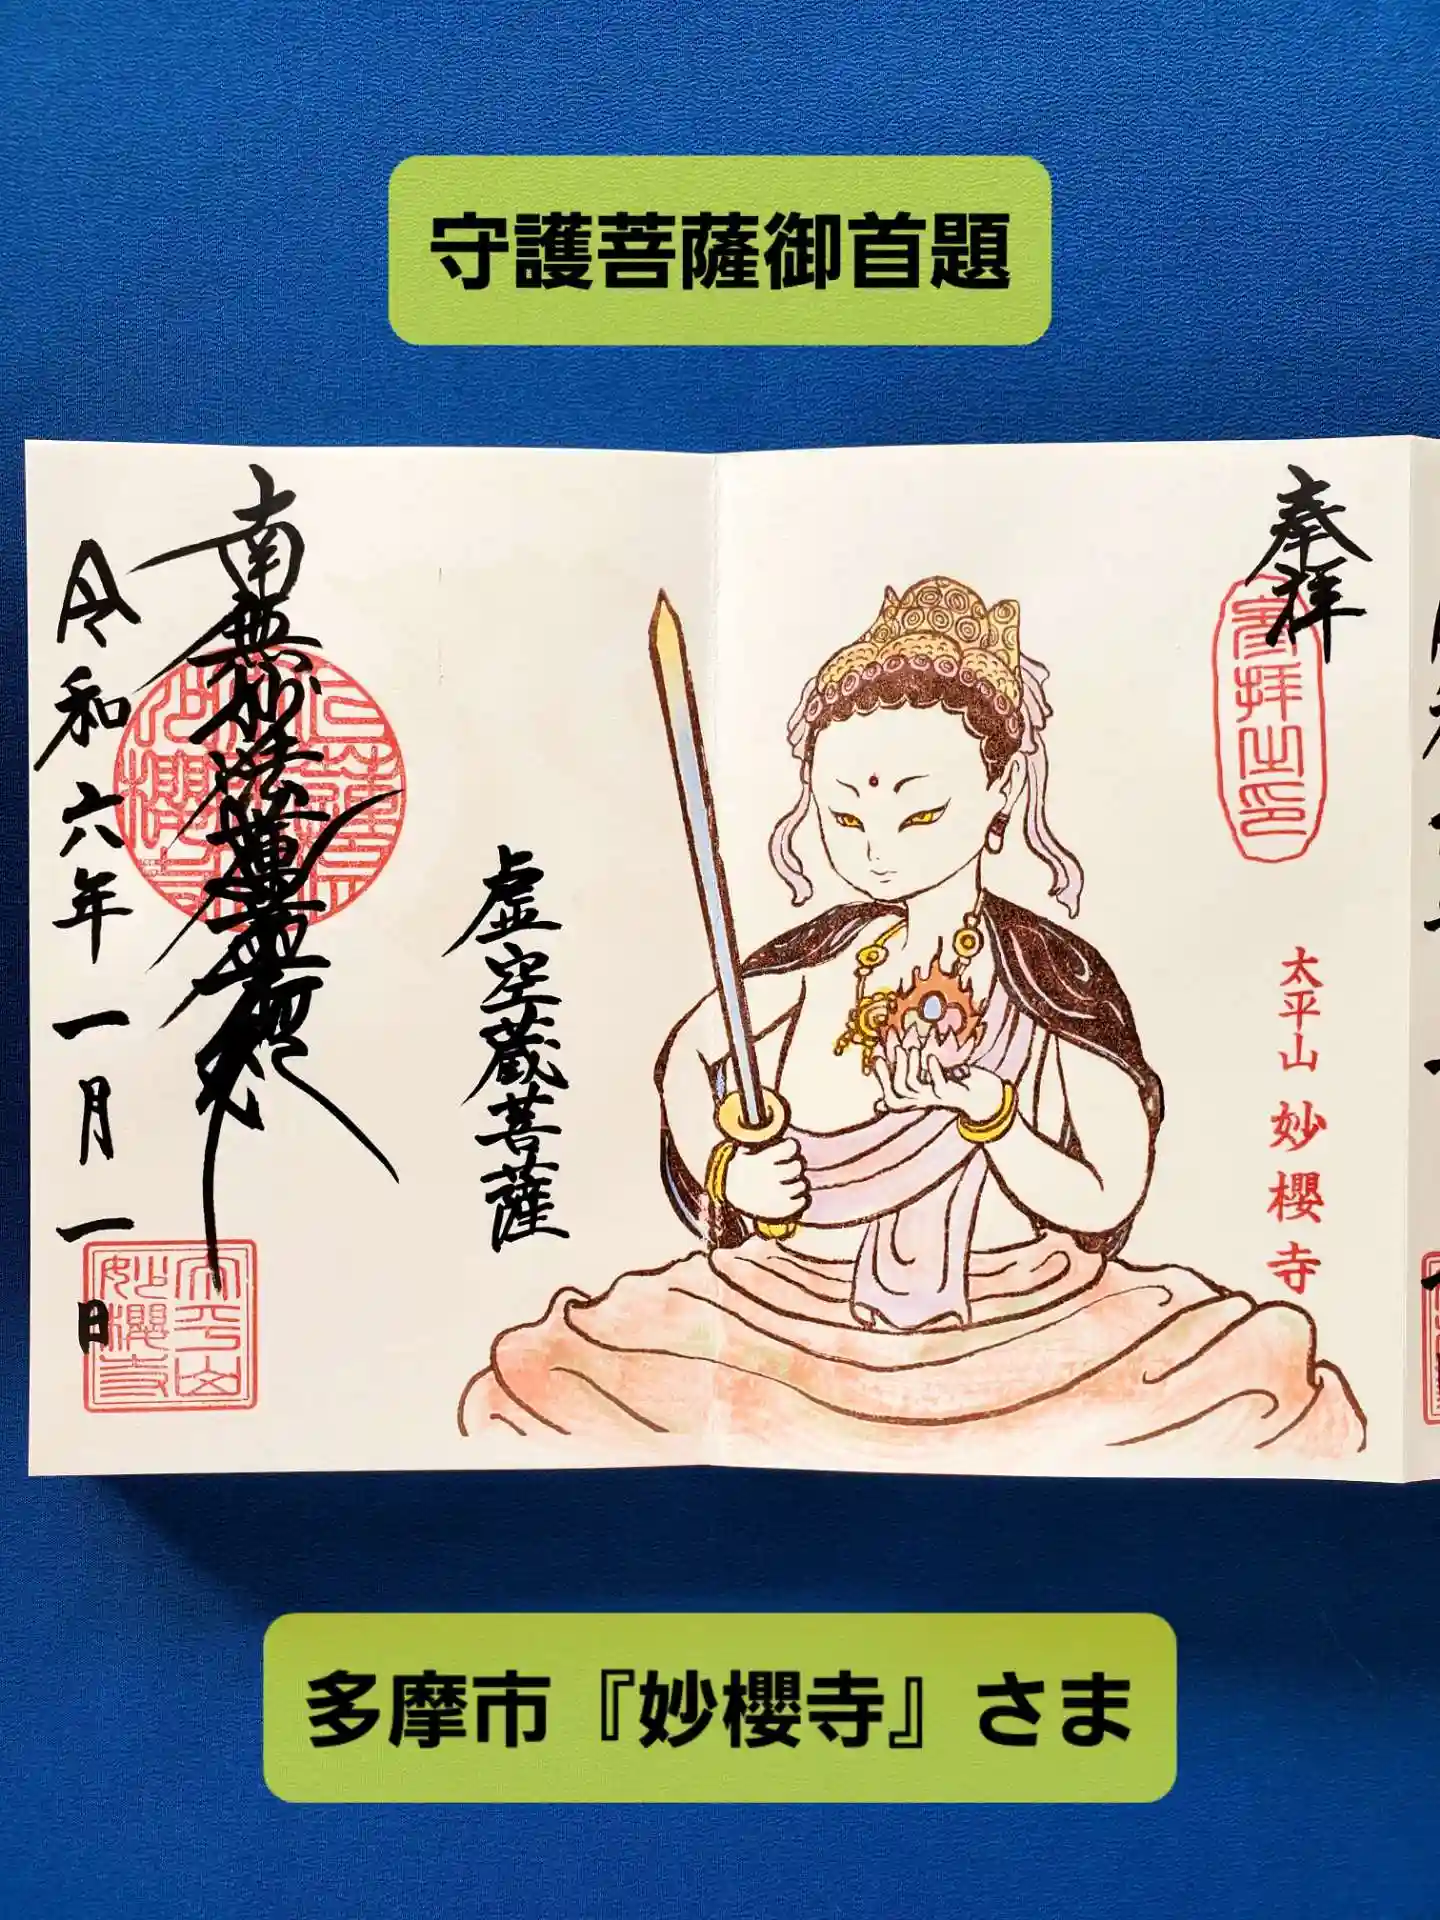 守護菩薩御首題
奉拝
参拝之印
太平山 妙櫻寺
虚空蔵菩薩
南無妙法蓮華経
令和六年一月一日
太平山
妙櫻寺
多摩市『妙櫻寺』さま